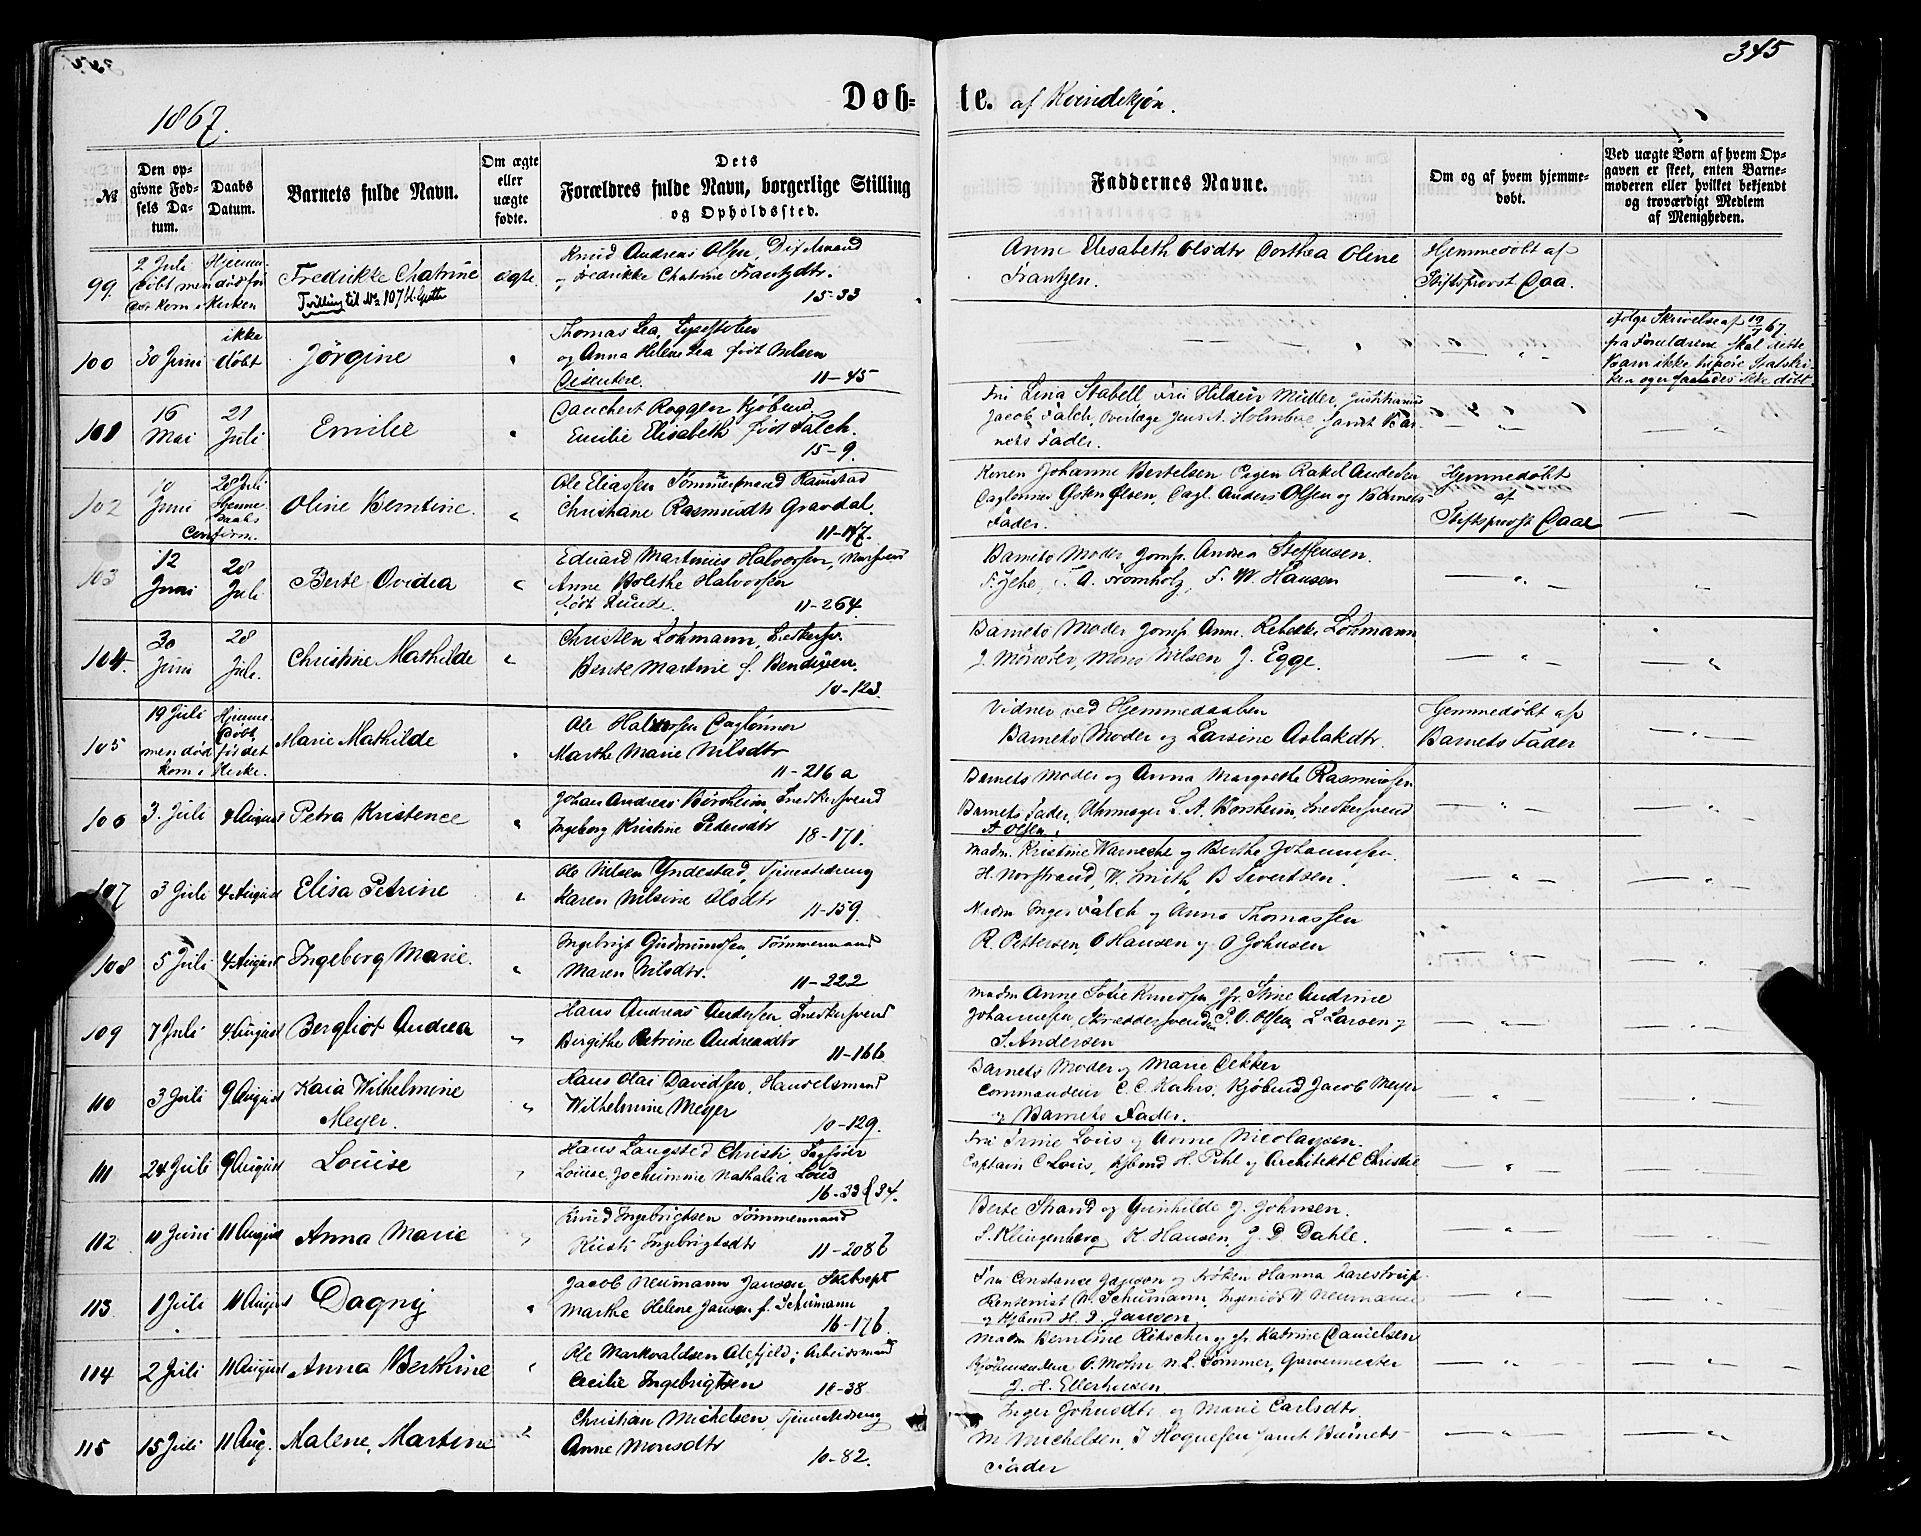 345
1867.
Døb=
te. af Kvindekjøn.
№
Den op-
givne Fød-
sels Da-
tum.
Daabs
Datum.
Barnets fulde Navn.
Om ægte
eller
uægte
fødte.
Dets
Forældres fulde Navn, borgerlige Stilling
og Opholdssted.
Faddernes Navne.
Om og af hvem hjemme-
døbt.
Ved uægte Børn af hvem Op-
gaven er skeet, enten Barne-
moderen eller hvilket bekjendt
og troværdigt Medlem
af Menigheden.
99.
2 Juli
Fredrikke Chatrine
Tvilling til No 107
ægte
Knud Andreas Olsen,
og Fredrikke Chatrine Frantzdtr.
15-33
Anne Elisabeth Olsdtr Dorthea Oline
Frantzen.
Hjemmedøbt af
Stiftsprovst Daa.
100
30 Juni
ikke
døbt
Jörgine
Thomas Lea,
og Anna Helene Lea født Nilsen
Disentere.
11-45
ifølge Skrivelse af 19/7 67.
fra Forældrene skal dette
Barn ikke tilhøre Statskir-
ken og er saaledes ikke døbt
101
16
Mai
21
Juli
Emilie
Danchert Roggen Kjøbmd
Emilie Elisabeth født Falch.
15-9.
Fru Lina Stabell, Fru Hildur Müller,
Jacob Falch, Overlæge Jens A. Holmboe, samt Bar-
nets Fader.
102
10
Juni
28 Juli
Hjemme
Daabs
Confirm.
Oline Berntine.
Ole Eliassen Tømmermand Ramstad
Christiane Rasmusdtr Gravdal.
11-147.
Konen Johanne Bertelsen Pigen Rakel Andersen
Dagl. Anders Olsen og Barnets
Fader.
Hjemmedøbt
af
Stiftsprovst Daae
103
12
Juni
28
Juli
Berte Ovidia
Edvard Martinus Halvorsen,
Anne Bolethe Halvorsen
født Lunde.
11-264
Barnets Moder Jomf. Andrea Steffensen.
A. Fromholz, F. W. Hansen
104.
30
Juni
28
Juli.
Christine Mathilde
Christen Lohmann, Snedkersv.
Berte Martine f. Bendixen.
10-123.
Barnets Moder Jomf. Anne. Rebekke Lohmann
Mons Nilsen J. Egge.
105
19 Juli
men død
kom i
Hjemme
døbt
før det
Kirke.
Marie Mathilde
Ole Halvorsen Daglønner
Marthe Marie Nilsdtr
11-216 a
Vidner ved Hjemmedaaben
Barnets Moder og Larsine Aslakdtr.
Hjemmedøbt af
Barnets Fader
106
3. Juli
4 August
Petra Kristence
Johan Andreas Børsheim, Snedkersvend
Ingeborg Kristine Pedersdtr
18-171.
Barnets Moder og Anna Margrethe Rasmussen
Barnets Fader, Uhrmager L. A. Borsheim, Snedkersvend
A Olsen.
107
3 Juli
4 August
Elisa Petrine
Ole Nilsen Yndestad, Tjenestedreng
Karen Nilsine Olsdtr
11-159.
Madm. Kristine Warnecke og Berthe Johannesen.
H. Norstrand, W. Smith, B Sivertsen.
108
5 Juli
4 August
Ingeborg Marie.
Ingebrigt Gudmundsen, Tømmermand
Maren Nilsdtr.
11-222
Madm Inger Falch og Anna Thomassen
R. Pettersen, O Hansen og O Johnsen
109
7 Juli
4 August
Bergliot Andrea
Hans Andreas Andersen Snedkersvend
Birgithe Petrine Andreasdtr
11-166
Madm Anne Sofie Knudsen Jfr. Stine Andrine
Johannesen, Skræddersvend P. O. Olsen, L Larsen og
S. Andersen
110
3 Juli
9 August
Kaia Wilhelmine
Meyer.
Hans Olai Davidsen, Handelsmand
Wilhelmine Meyer
10-129.
Barnets Moder og Marie Dekker
Commandeur C. C. Kahrs, Kjøbmd Jacob Meyer
og Barnets Fader.
111
24 Juli
9 August
Louise
Hans Langsted Christi Sagfører
Louise Jochumine Nathalia Louis
16-33 & 34.
Fru Trine Louis og Anne Nicolaysen.
Captain C Louis, Kjbmd H. Pihl og Architekt C Christie
112
11 Juni
11 August
Anna Marie
Knud Ingebrigtsen Tømmermand
Kirsti Ingebrigtsdtr
11-208 b
Berte Strand og Gunhilde J. Johnsen.
S. Klingenberg K Hansen, J. D Dahle.
113
1 Juli
11 August
Dagny
Jacob Neumann Janson, Skibscpt
Marthe Helene Janson f. Schumann
16-176.
Fru Constance Janson og Frøken Hanna
W. Schumann, Ingeniør W Neumann
og Kjbmd H. D. Janson
114
2 Juli
11 August
Anna Berthine
Ole Markvaldsen Alefjeld, Arbeidsmand
Cecilie Ingebrigtsen
10-38
Madm Berntine Ritscher og Jfr. Katrine Danielsen
Kjøbmændene O. Mohn N. L. Sømmer, Garvermester
J. H. Ellerhusen
115
15 Juli
11 Aug.
Malene, Martine
Christian Michelsen, Tjenestedreng
Anne Monsdtr
10-82.
Inger Johnsdtr og Marie Carlsdtr.
M Michelsen, samt Barnets
Fader